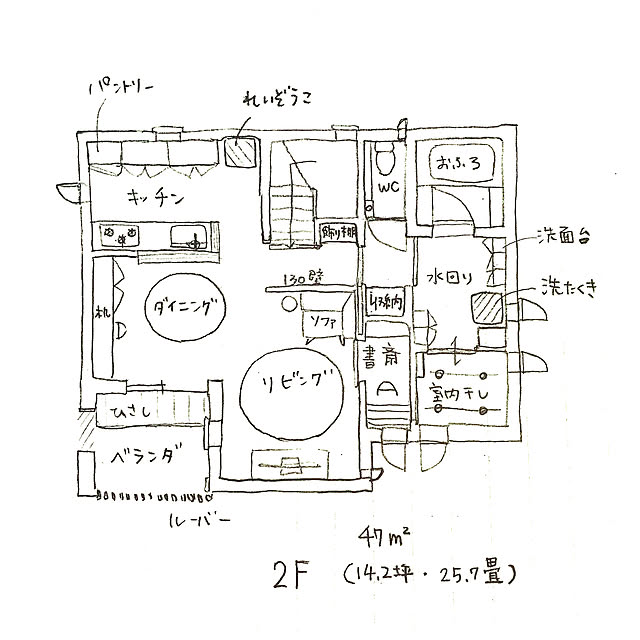 パントリー
れいぞうこ
キッチン
WC
おふろ
飾り棚
洗面台
水回り
130壁
洗たくき
机
ダイニング
ソファ
収納
書斎
リビング
室内干し
ひさし
ベランダ
ルーバー
47m²
2F (14.2坪・25.7畳)